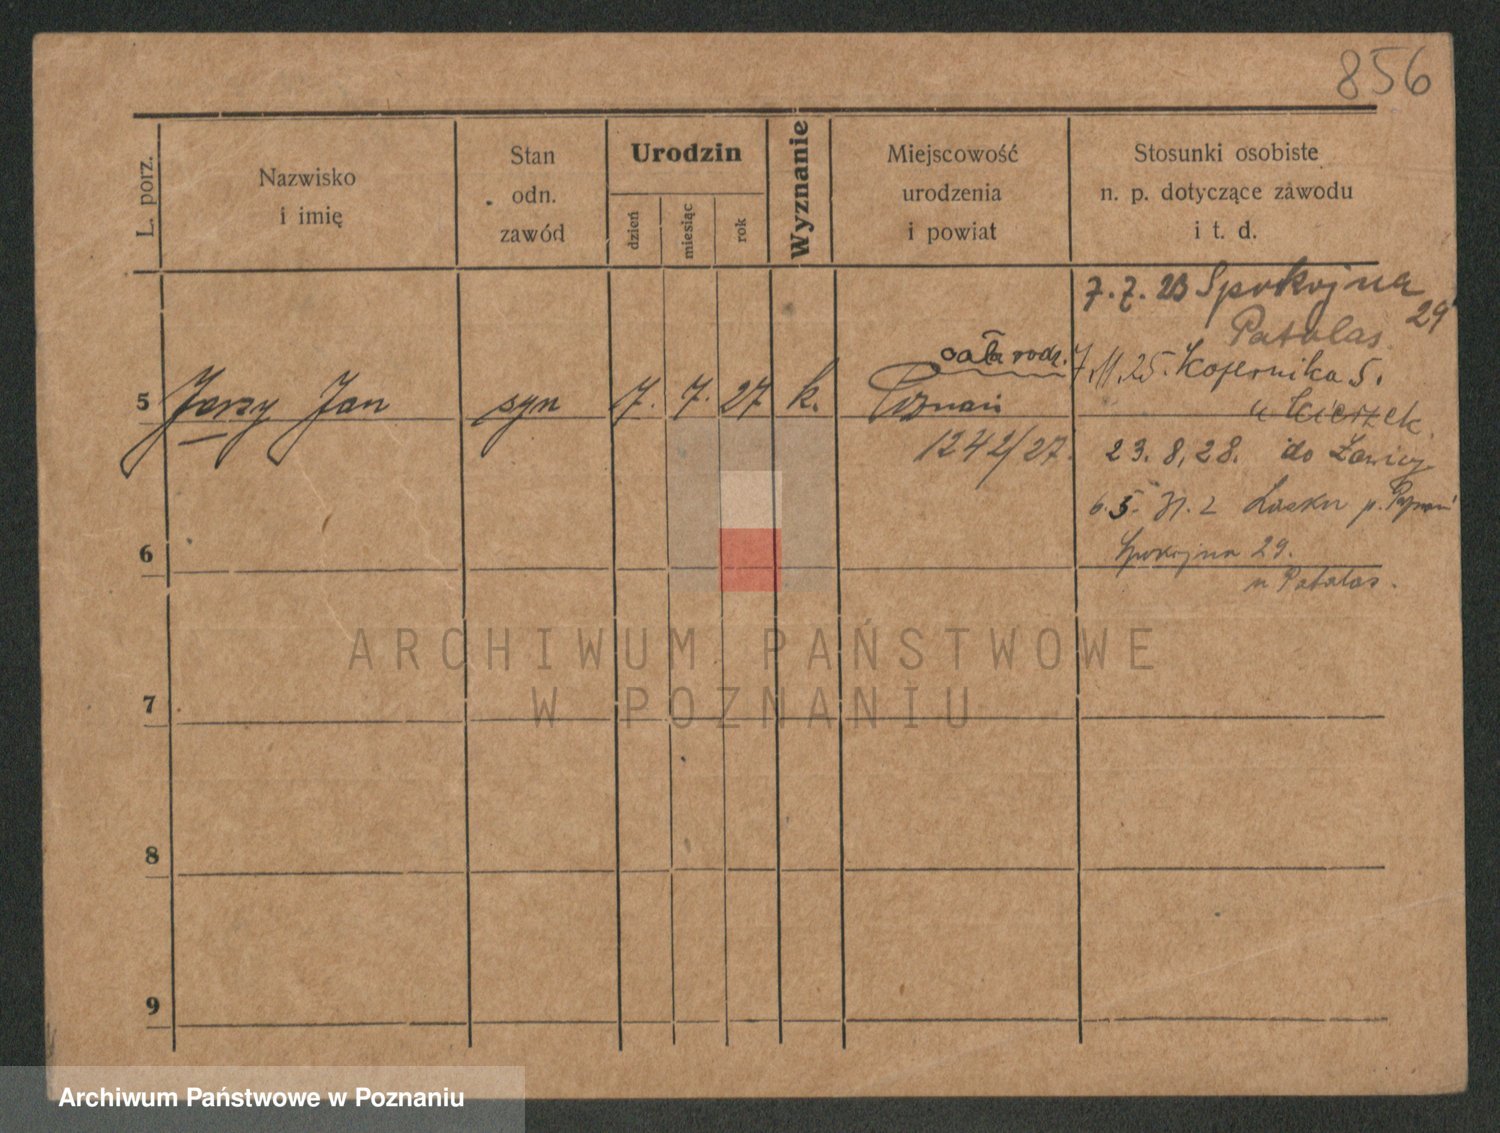 856
L. porz.
Nazwisko
i imię
Stan
odn.
zawód
Urodzin
dzień
miesiąc
rok
Wyznanie
Miejscowość
urodzenia
i powiat
Stosunki osobiste
n. p. dotyczące zawodu
i t. d.
7.7.23 Spokojna
29
Patalas.
cała rodz. 7.11.25. Kopernika 5.
5 Jerzy Jan syn 7. 7. 27 k. Poznań
1242/27. 23.8.28. do
6.5. Lasku p. Poznań
6 Spokojna 29.
u Patalas.
7
8
9
ARCHIWUM PAŃSTWOWE
W POZNANIU
Archiwum Państwowe w Poznaniu